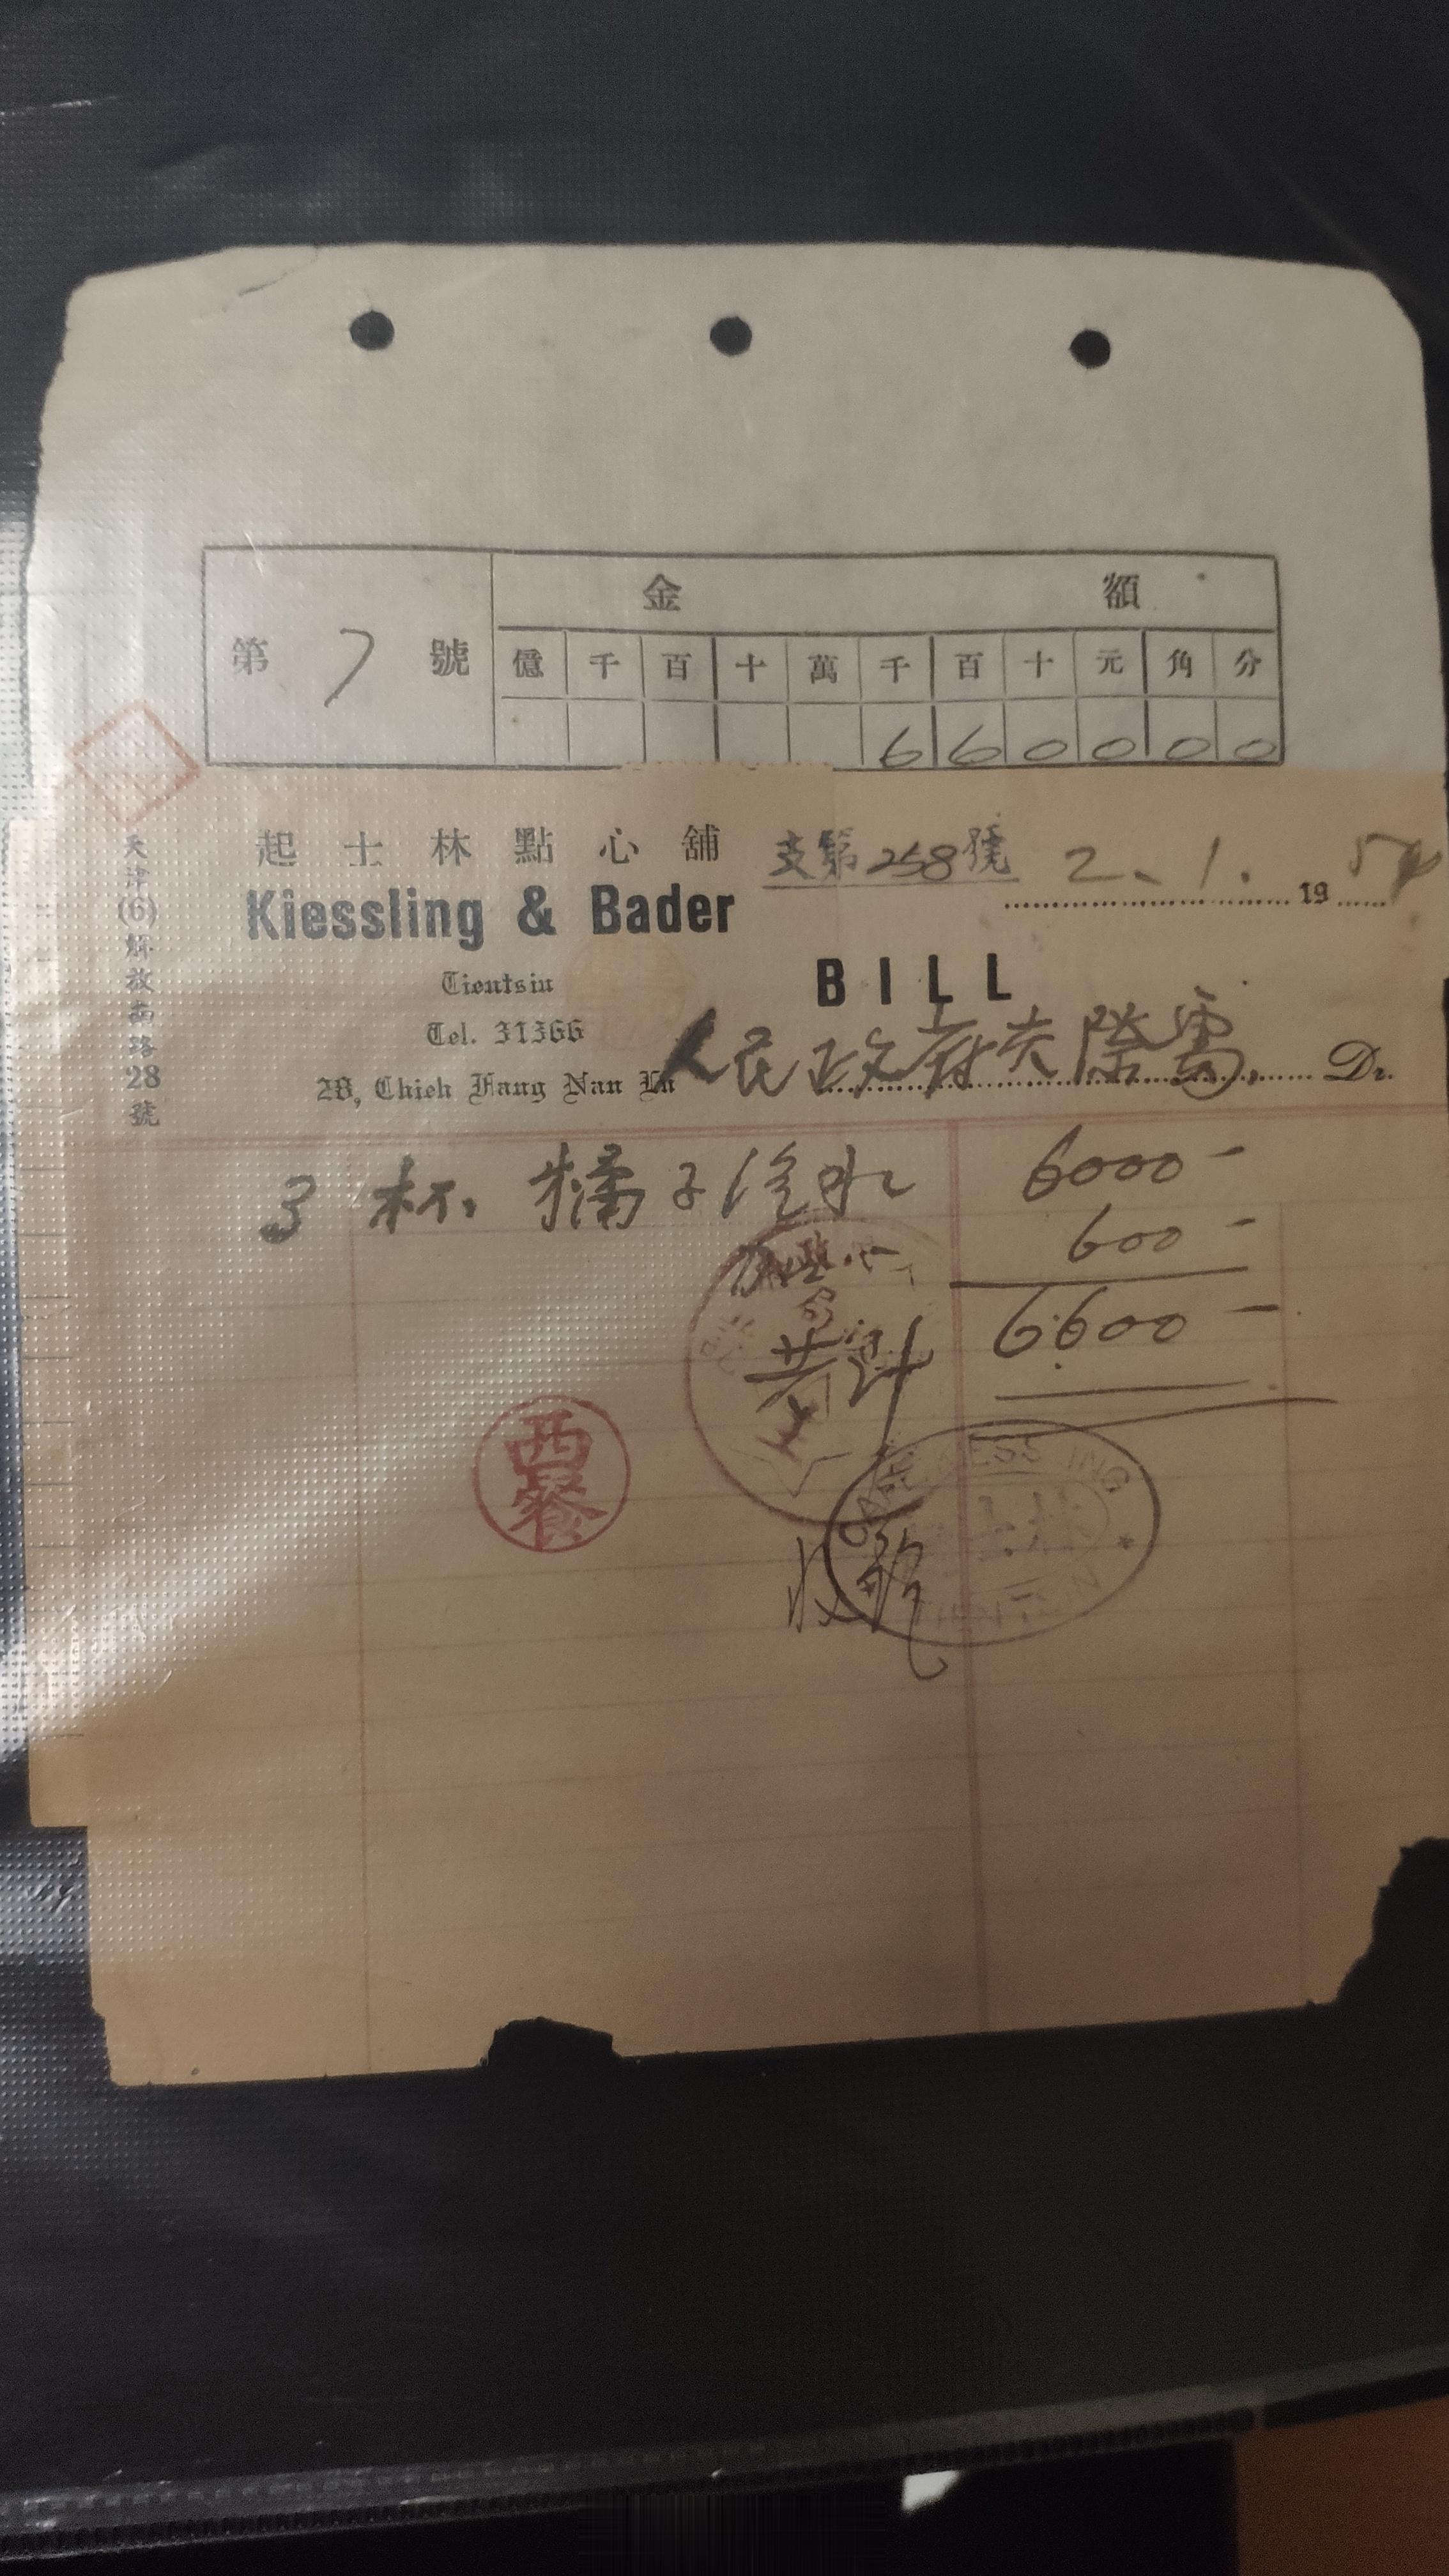 金額
第 7 號
億 千 百 十 萬 千 百 十 元 角 分
6 6 0 0 0 0
天津(6)解放南路28號
起士林點心舖
支第258號
2、1. 19 54
Kiessling & Bader
Tientsin
BILL
Tel. 31366
人民政府交際處
28, Chieh Fang Nan Lu
Dr.
3 杯 橘子汽水 6000-
600-
6600-
西餐
CAFE KIESSLING
TIENTSIN